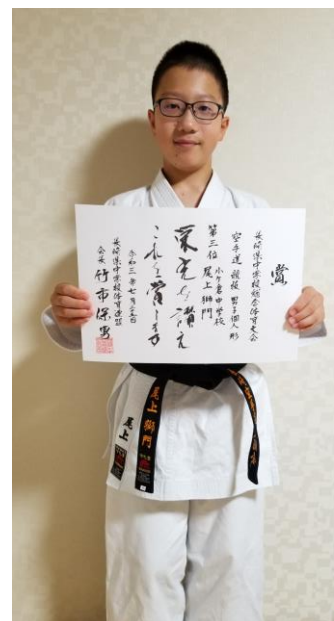 賞
長崎県中学校総合体育大会
空手道 競技 男子個人形
第三位 小ヶ倉中学校
尾上 獅門
栄光を讃え
これを賞します
令和三年七月
長崎県中学校体育連盟
会長 竹市保
尾上 獅門
尾上